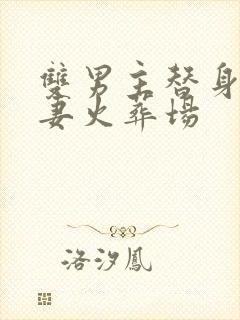 雙男主替身
妻火葬場
洛汐鳳